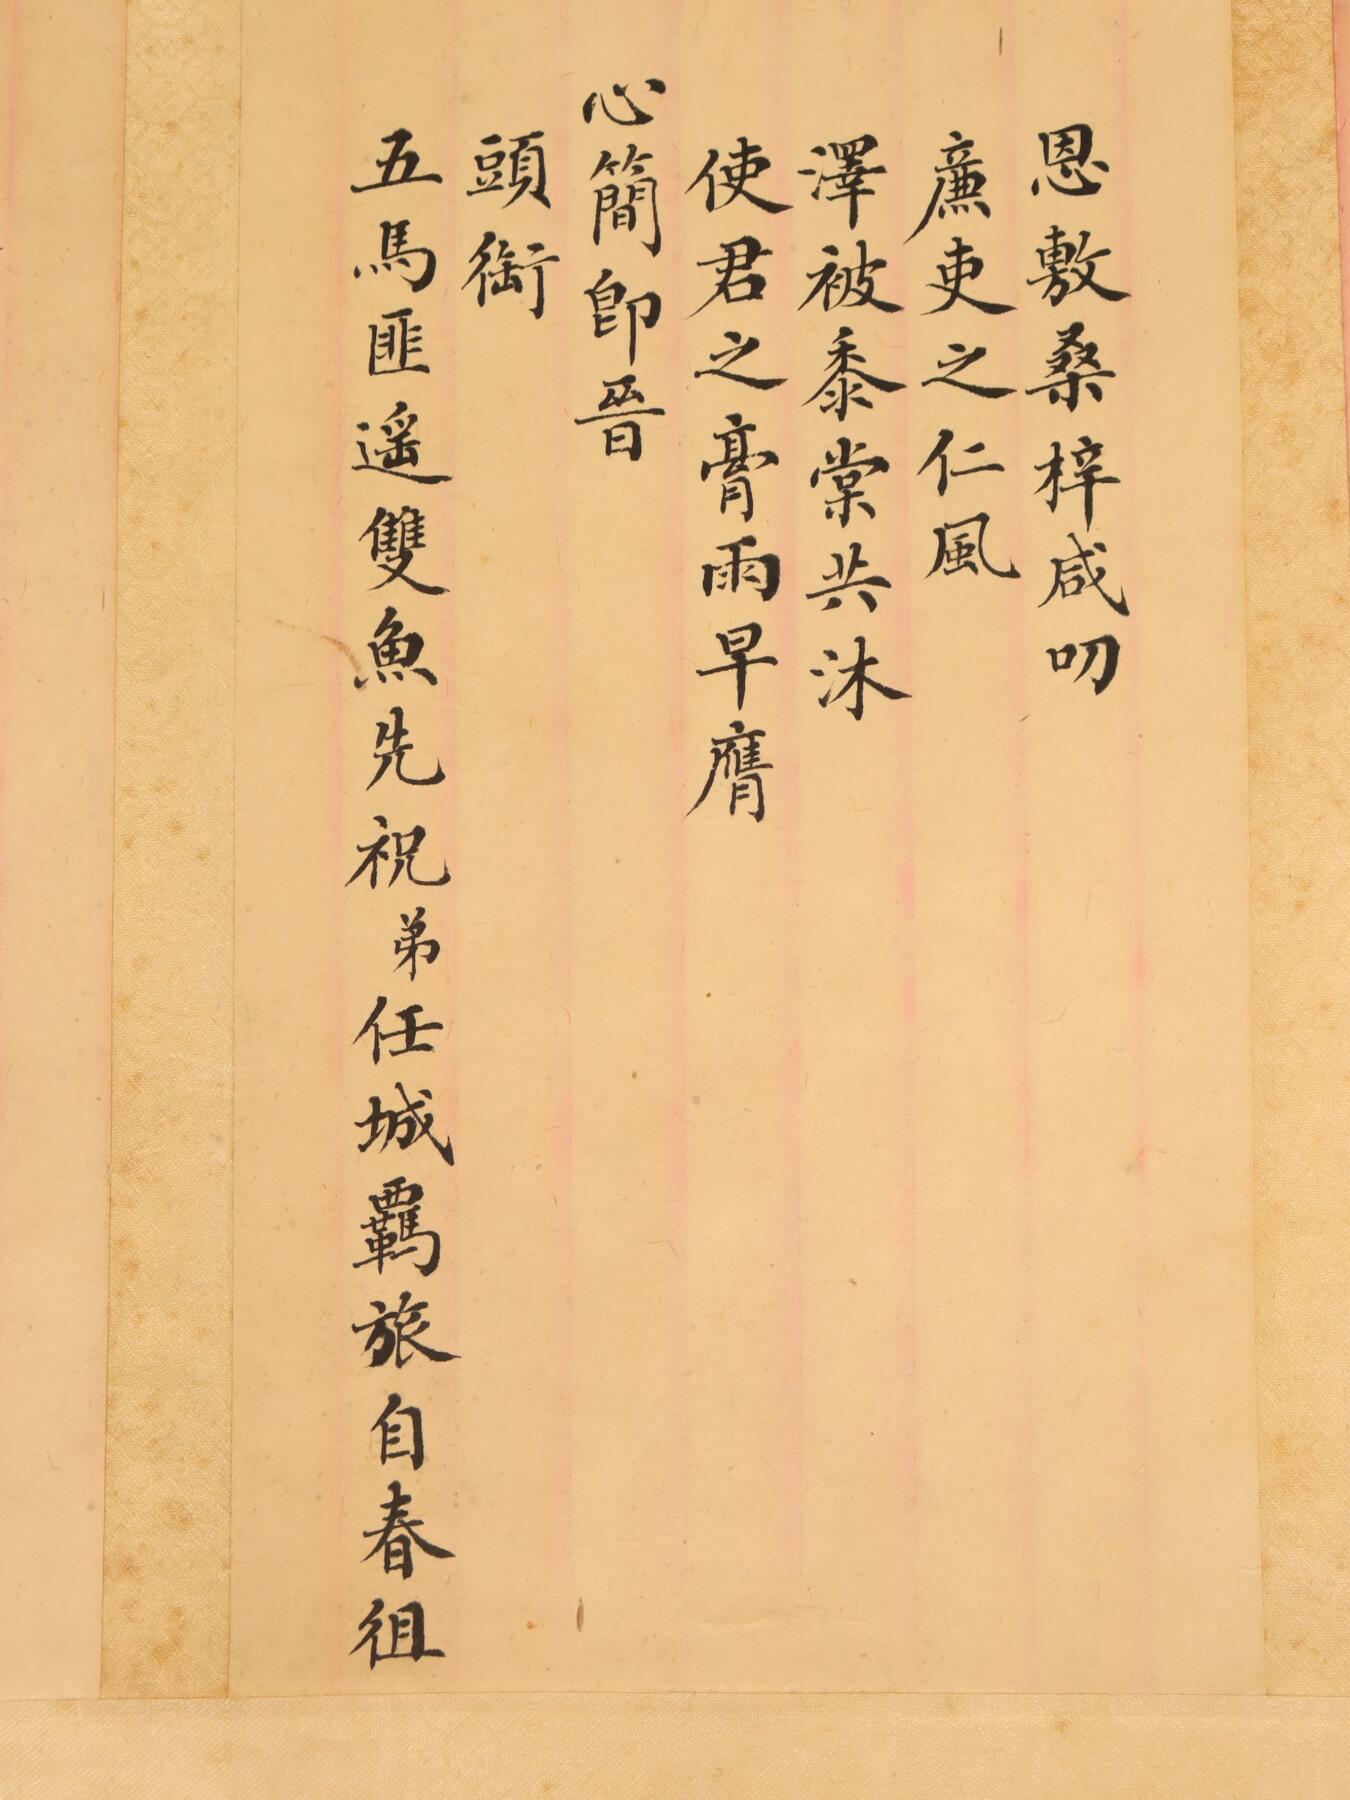 恩敷桑梓咸叨
廉吏之仁風
澤被黍棠共沐
使君之膏雨早膺
心簡即晉
頭銜
五馬匪遥雙魚先祝弟任城羈旅自春徂